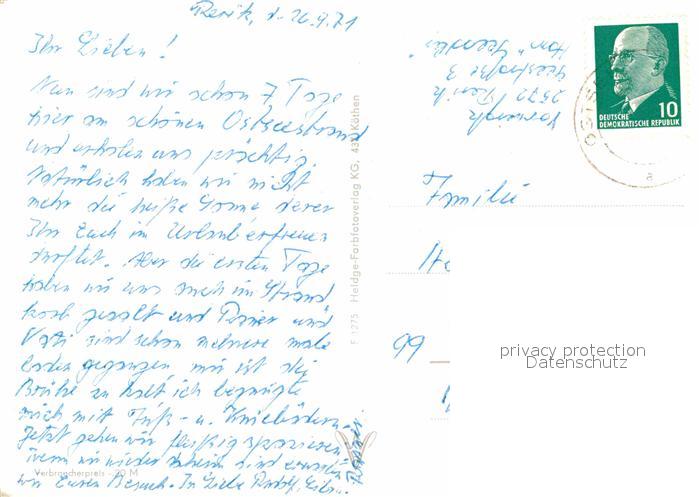 Rerik, d. 26.9.71
Ihr Lieben!
Nun sind wir schon 7 Tage
hier am schönen Ostseestrand
und erholen uns prächtig.
Natürlich haben wir nicht
mehr die heiße Sonne derer
Ihr Euch im Urlaub erfreuen
durftet. Aber die ersten Tage
haben wir uns noch im Strand
korb gesalt und Rainer und
Vati sind schon mehrere male
baden gegangen, mir ist die
Brühe zu kalt, ich begnügte
mich mit Fuß- u. Kniebädern.
Jetzt gehen wir fleißig spazieren
wenn wir wieder daheim sind erwarten
wir Euren Besuch. In Liebe Rudolf,
Rainer
Verbraucherpreis -,20 M
F 1275 Heldge-Farbfotoverlag KG, 437 Köthen
2572 Rerik
Seestraße 3
DEUTSCHE
DEMOKRATISCHE REPUBLIK
10
OSTSEE
a
Familie
99
privacy protection
Datenschutz